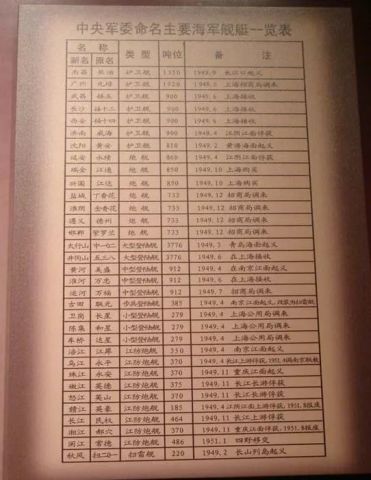 中央军委命名主要海军舰艇一览表
名称 类型 吨位 备注
新名 原名
南昌 长治 护卫舰 1350 1949.9 长江口起义
广州 元培 护卫舰 1920 上海招商局调来
武昌 接五 护卫舰 900 上海接收
长沙 接十二 护卫舰 900 1949.6 上海接收
西安 接十四 护卫舰 900 1949.6 上海接收
济南 威海 护卫舰 1949.4 江阴江面俘获
沈阳 黄安 护卫舰 810 1949.2 黄海海面起义
延安 永绩 炮舰 860 1949.4 江阴江面俘获
瑞金 江通 炮舰 850 1949.10 上海购买
江达 炮舰 850 1949.10 上海购买
盐城 丁香花 炮舰 733 1949.12 招商局调来
淮阴 炮舰 733 1949.12 招商局调来
遵义 德州 炮舰 733 1949.12 招商局调来
邯郸 紫罗兰 炮舰 733 1949.12 招商局调来
太行山 中一〇二 大型登陆舰 3776 1949.3 青岛海面起义
井岗山 五三八 大型登陆舰 3776 1949.6 在上海接收
黄河 美盛 中型登陆舰 912 1949.4 在南京江面起义
淮河 万忠 中型登陆舰 912 1949.6 在上海接收
运河 万福 中型登陆舰 912 1949.7 招商局调来
古田 联光 步兵登陆舰 385 1949.4 南京江面起义
卫岗 长星 小型登陆舰 279 1949.4 上海公用局调来
陈集 和星 小型登陆舰 279 1949.4 上海公用局调来
车桥 达星 小型登陆舰 279 1949.4 上海公用局调来
涪江 江犀 江防炮舰 350 1949.4 南京江面起义
乌江 永平 江防炮舰 370 1949.4
珠江 永安 江防炮舰 370 1949.11 重庆江面起义
嫩江 英德 江防炮舰 375 1949.11 长江上游俘获
怒江 英山 江防炮舰 370 1949.11 长江上游俘获
英豪 江防炮舰 185 1949.4
长江 民权 江防炮舰 464 1949.11 长江上游俘获
湘江 郝穴 江防炮舰 370 1949.11
闽江 常德 江防炮舰 486 1951.1 四野移交
秋风 扫二〇一 扫雷舰 220 1949.2 长山列岛起义